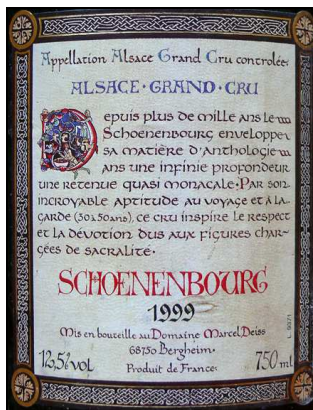 Appellation Alsace Grand Cru controlée
ALSACE · GRAND · CRU
Depuis plus de mille ans Le
Schoenenbourg enveloppe
sa matière d'anthologie
dans une infinie profondeur
une retenue quasi monacale. Par son
incroyable aptitude au voyage et à la
garde (30 à 50 ans), ce cru inspire le respect
et la dévotion dus aux figures char-
gées de sacralité.
SCHOENENBOURG
1999
Mis en bouteille au Domaine Marcel Deiss
68750 Bergheim.
12,5% vol
Produit de France.
750 ml